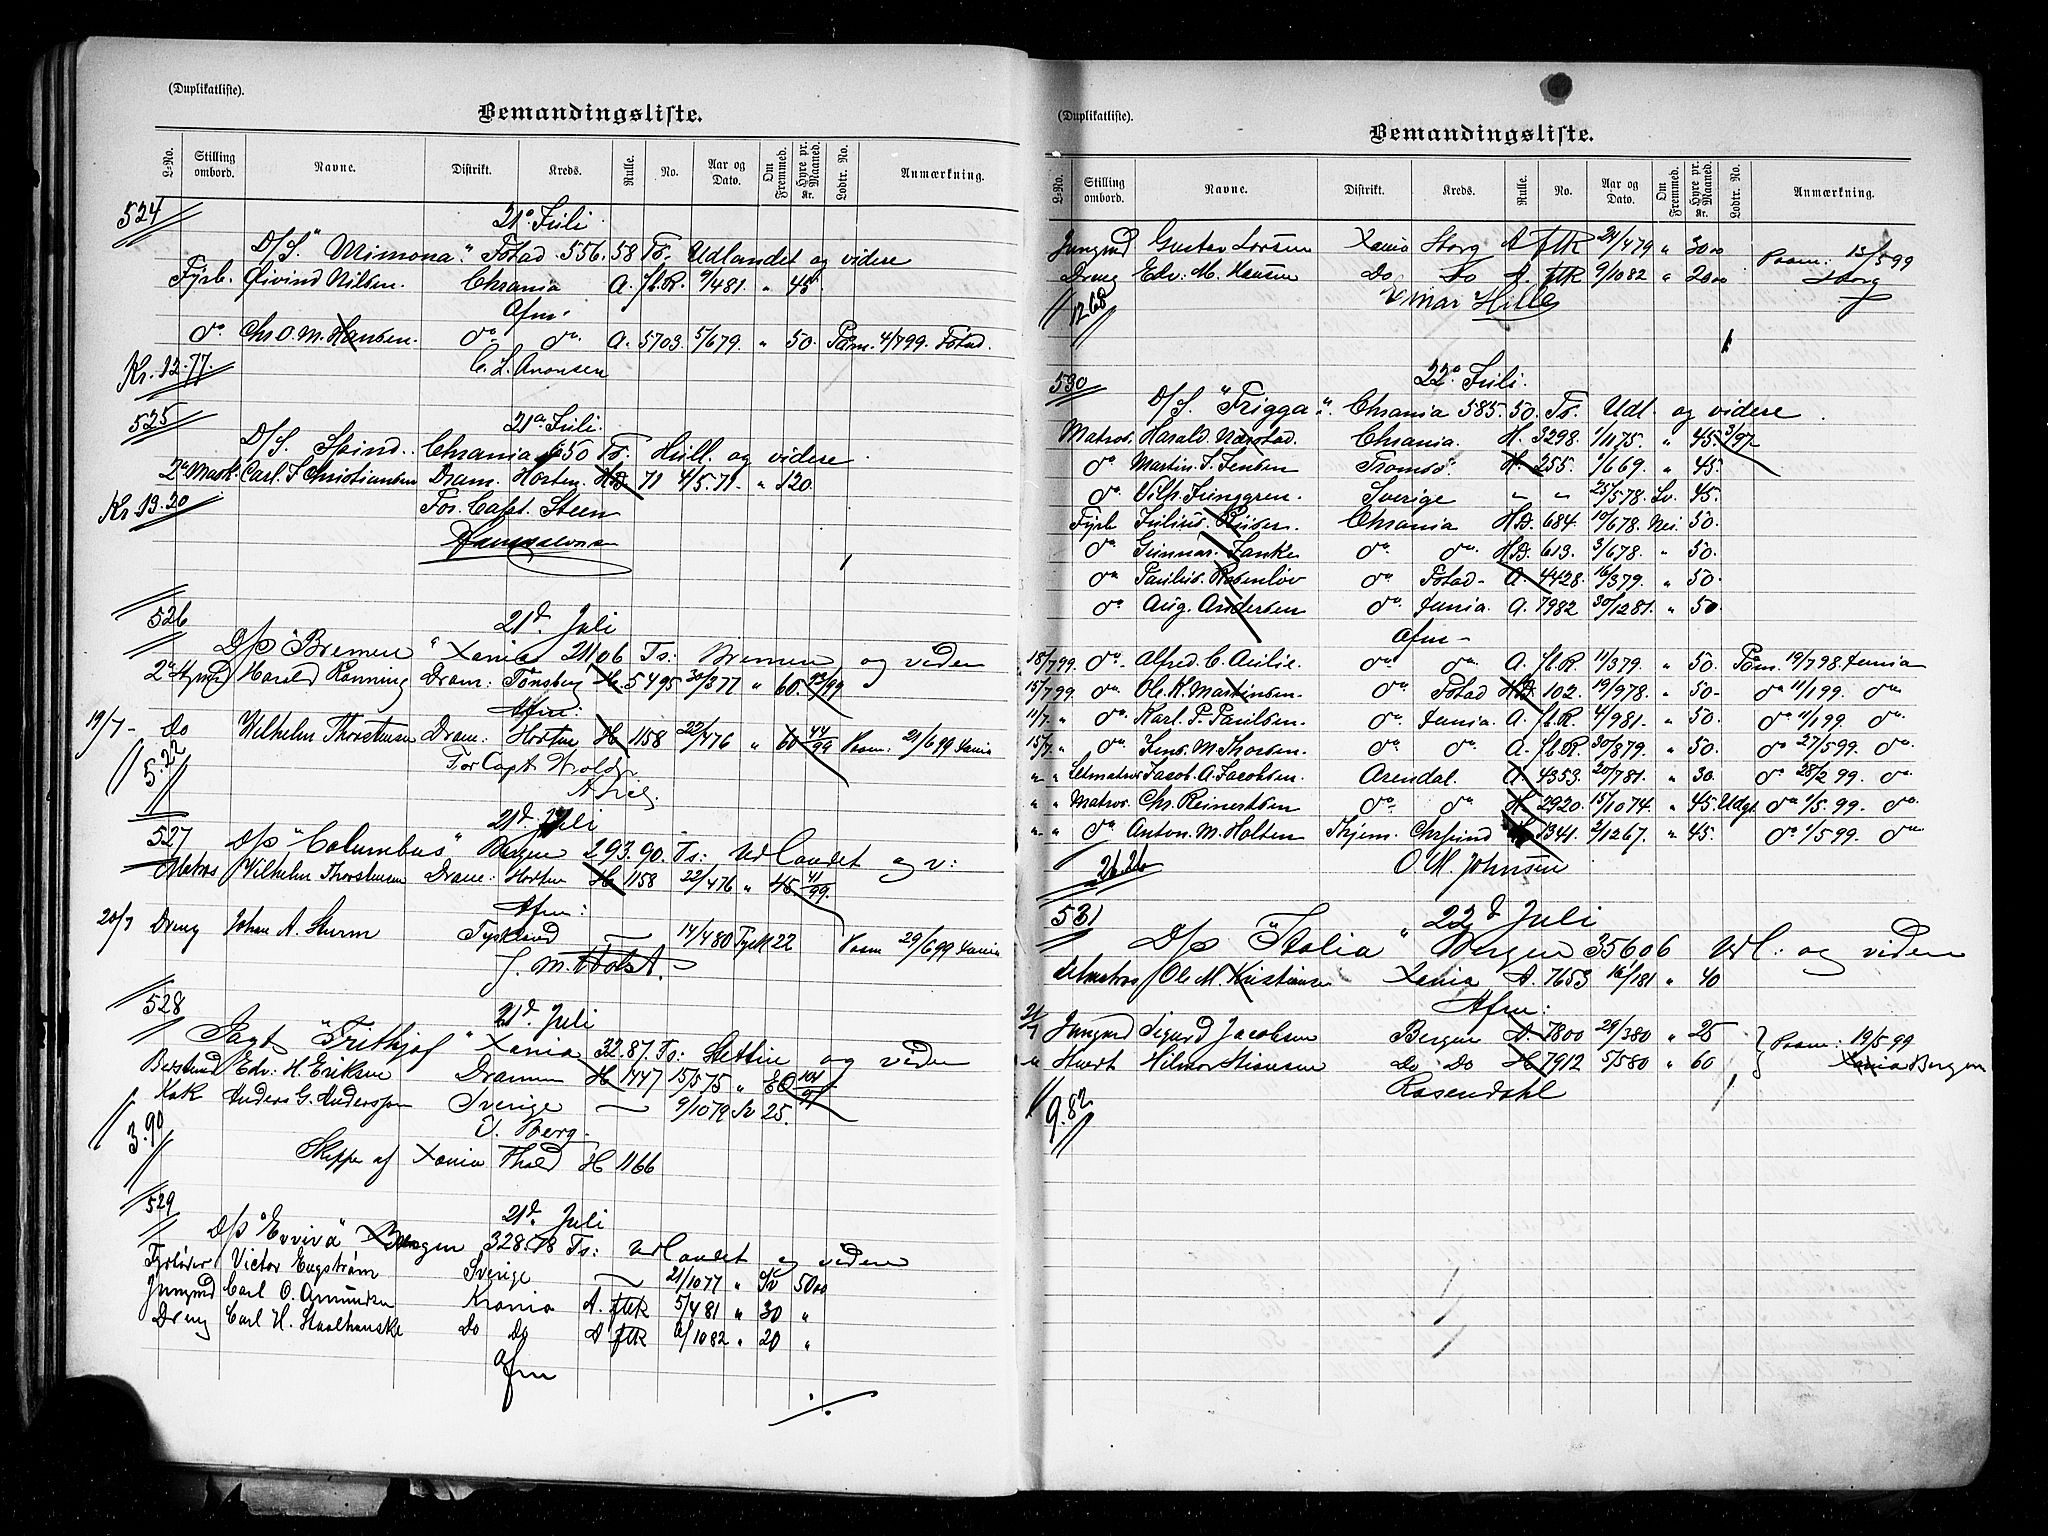 (Duplikatliste).
Bemandingsliste.
L-No. Stilling ombord. Navne. Distrikt. Kreds. Rulle. No. Aar og Dato. Om Fremmed. Hyre pr. Maaned. Kr. Lodtr. No. Anmærkning.
524 21º Juli.
D/S. "Mimona" Fstad. 556.58 Ts. Udlandet og videre
Fyrb. Øivind Nilsen. Chrania A. fl.R. 9/481. " 45.
Afm:
do Chr. O. M. Hansen. do do. A. 5703. 5/679. " 50. Paam. 4/799. Fstad.
Kr. 12.77. C. L. Aronsen
525 21º Juli.
D/S. Skind. Chrania 650 Ts. Hull. og videre.
2n Mask. Carl. F. Christiansen Dram. Horten. HD 71 4/5.71. " 120.
Kr 19.20 For. Capt. Steen
526 21d. Juli
D/S "Bremen" Xania 2106 Ts: Bremen og videre
2n Harald Rønning Dram: Tønsberg H 5495 20/377 " 60.
Afm:
19/7 - Do Wilhelm Thorstensen Dram: Horten H 1158 22/476 " 60 44/99 Paam: 21/699 Xania
5.22 For Capt Wold
527 21d. Juli
D/S "Columbus" Bergen 293.90. Ts: Udlandet og v:
Matros Wilhelm Thorstensen Dram: Horten H 1158 22/476 " 45. 41/99.
Afm:
20/7 Dreng Johan A. Sturm Tyskland — 14/480 Tysk 22 Paam 29/699 Xania
J. M. Holst.
528 21d. Juli
Jagt "Frithjof" Xania 32.87. Ts: Stettin og videre
Bestmd Edv: H. Eriksen Drammen H 1447 15/575 " 80
Kok Anders G. Andersson Sverige — 9/1079 Sv 25.
3.90 O. Berg.
Skipper af Xania Thold H 1166
529 21d. Juli
D/S "Evviva" Bergen 328.18 Ts: Udlandet og videre
Fyrbøder Victor Engstrøm Sverige — 21/1077 " Sv 50 00
Jungmd Carl O. Amundsen Krania A. ftR 5/481 " 30 "
Dreng Carl H. Staalhanske Do Do A ftR 9/1082 " 20 "
Afm
./.
(Duplikatliste).
Bemandingsliste.
L-No. Stilling ombord. Navne. Distrikt. Kreds. Rulle. No. Aar og Dato. Om Fremmed. Hyre pr. Maaned. Kr. Lodtr. No. Anmærkning.
Jungmd Gustav Larsen Xania Sborg A ftR 24/479 " 30 00 Paam: 13/599
Dreng Edv. M. Hansen Do Do A. ftR 9/1082 " 20 00 Sborg
12.68 Einar Hille
530 22º Juli.
D/S. "Frigga". Chrania 585.50. Ts. Udl. og videre.
Matros. Harald. Chrania. H. 3298. 1/1175. " 45. 3/97
do Martin. J. Jensen Tromsø. H. 255. 1/669. " 45.
do Vilh. Ljunggren. Sverige " " 25/578. Sv. 45.
Fyrb Julius. Chrania HD. 684. 10/678. Nei. 50.
do Gunnar. Janke do do. HD. 613. 3/678. " 50.
do Paulus. Rosenløv do Fstad. A. 4428. 16/379. " 50.
do Aug. Andersen do. Xania. A. 7982 30/1281. " 50.
Afm—
18/799. do. Alfred. C. do do. A. fl.R. 11/379. " 50. Paam. 19/798. Xania
15/799. do. Ole. K. Martinsen. do Fstad HD. 102. 19/978. " 50. do 11/199. do
11/7. " do. Karl. P. Paulsen. do Xania. A. fl.R. 4/981. " 50. do 11/199. do.
15/7. " do. Jens. M. Thorsen. do do. A. fl.R. 30/879. " 50. do 27/599. do.
" " Letmatros Jacob. A. Jacobsen. Arendal. A. 4353. 20/781. " 30. do 28/2 99. do.
" " Matros. Chr. Reinertsen do. do H. 2920. 15/1074. " 45. Udgt. do 1/5. 99. do.
" " do. Anton. M. Holten Thjem. Chrsund 1341. 2/1267. " 45. do 1/599. do
26.26 O M. Johnsen
531 22d Juli
D/S "Italia" Bergen 356.06 Udl: og videre
Letmatros Ole M. Kristiansen Xania A. 7653 16/181 " 40
Afm:
21/7 Jungmd Sigurd Jacobsen Bergen A. 7800 29/380 " 25 Paam: 19/599
" Stuert Hilmar Do Do H 7912 5/580 " 60 Xania Bergen
9.82 Rosendahl